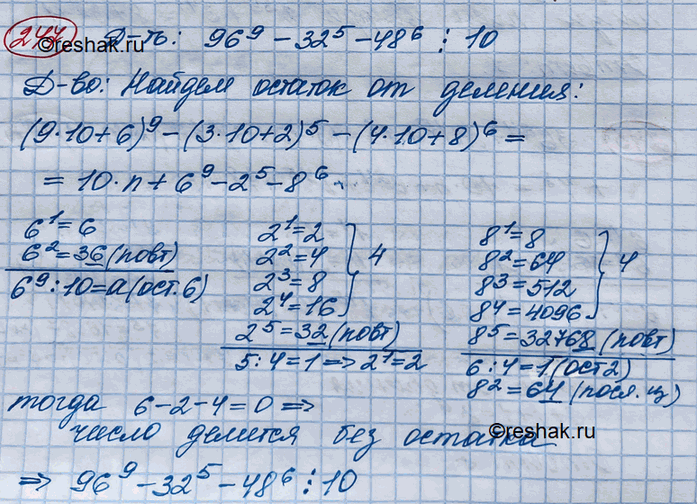 244 Д-ть: 96⁹ - 32⁵ - 48⁶ ⋮ 10
©reshak.ru
Д-во: Найдем остаток от деления:
(9·10+6)⁹ - (3·10+2)⁵ - (4·10+8)⁶ =
= 10·n + 6⁹ - 2⁵ - 8⁶
6¹=6
6²=36 (повт)
6⁹:10=a (ост. 6)
2¹=2
2²=4
2³=8
2⁴=16
} 4
2⁵=32 (повт)
5:4=1 => 2¹=2
8¹=8
8²=64
8³=512
8⁴=4096
} 4
8⁵=32768 (повт)
6:4=1 (ост 2)
8²=64 (посл. ц)
тогда 6-2-4=0 =>
число делится без остатка
©reshak.ru
=> 96⁹ - 32⁵ - 48⁶ ⋮ 10